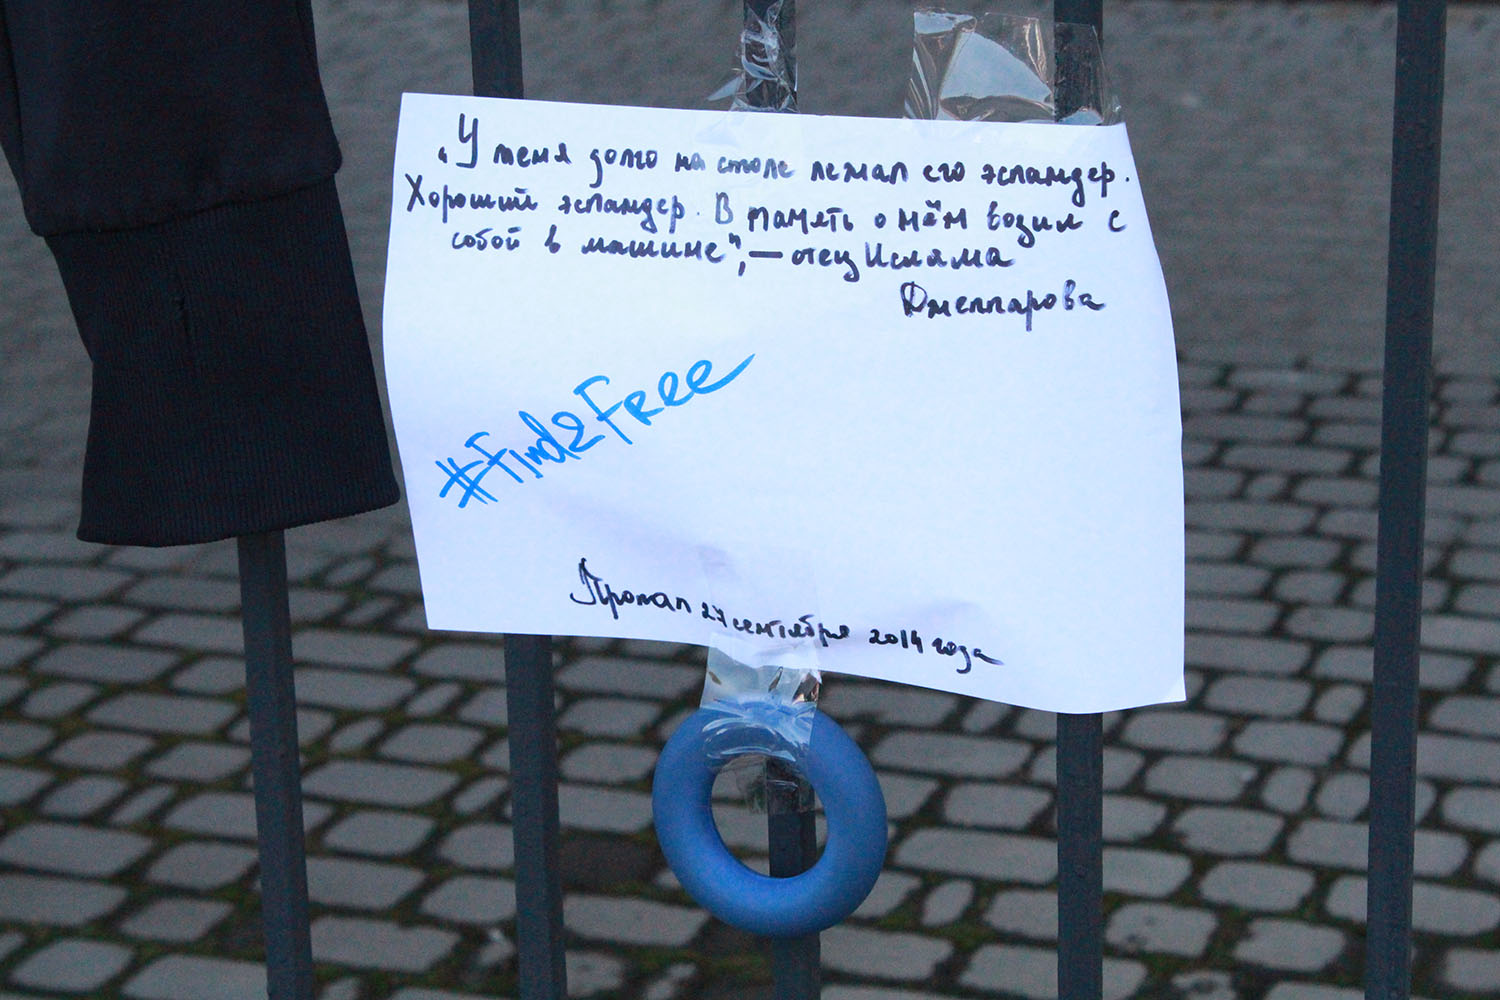 „У меня долго на столе лежал его эспандер.
Хороший эспандер. В память о нём возил с
собой в машине", — отец Исляма
Джеппарова
#Find2Free
Пропал 27 сентября 2014 года